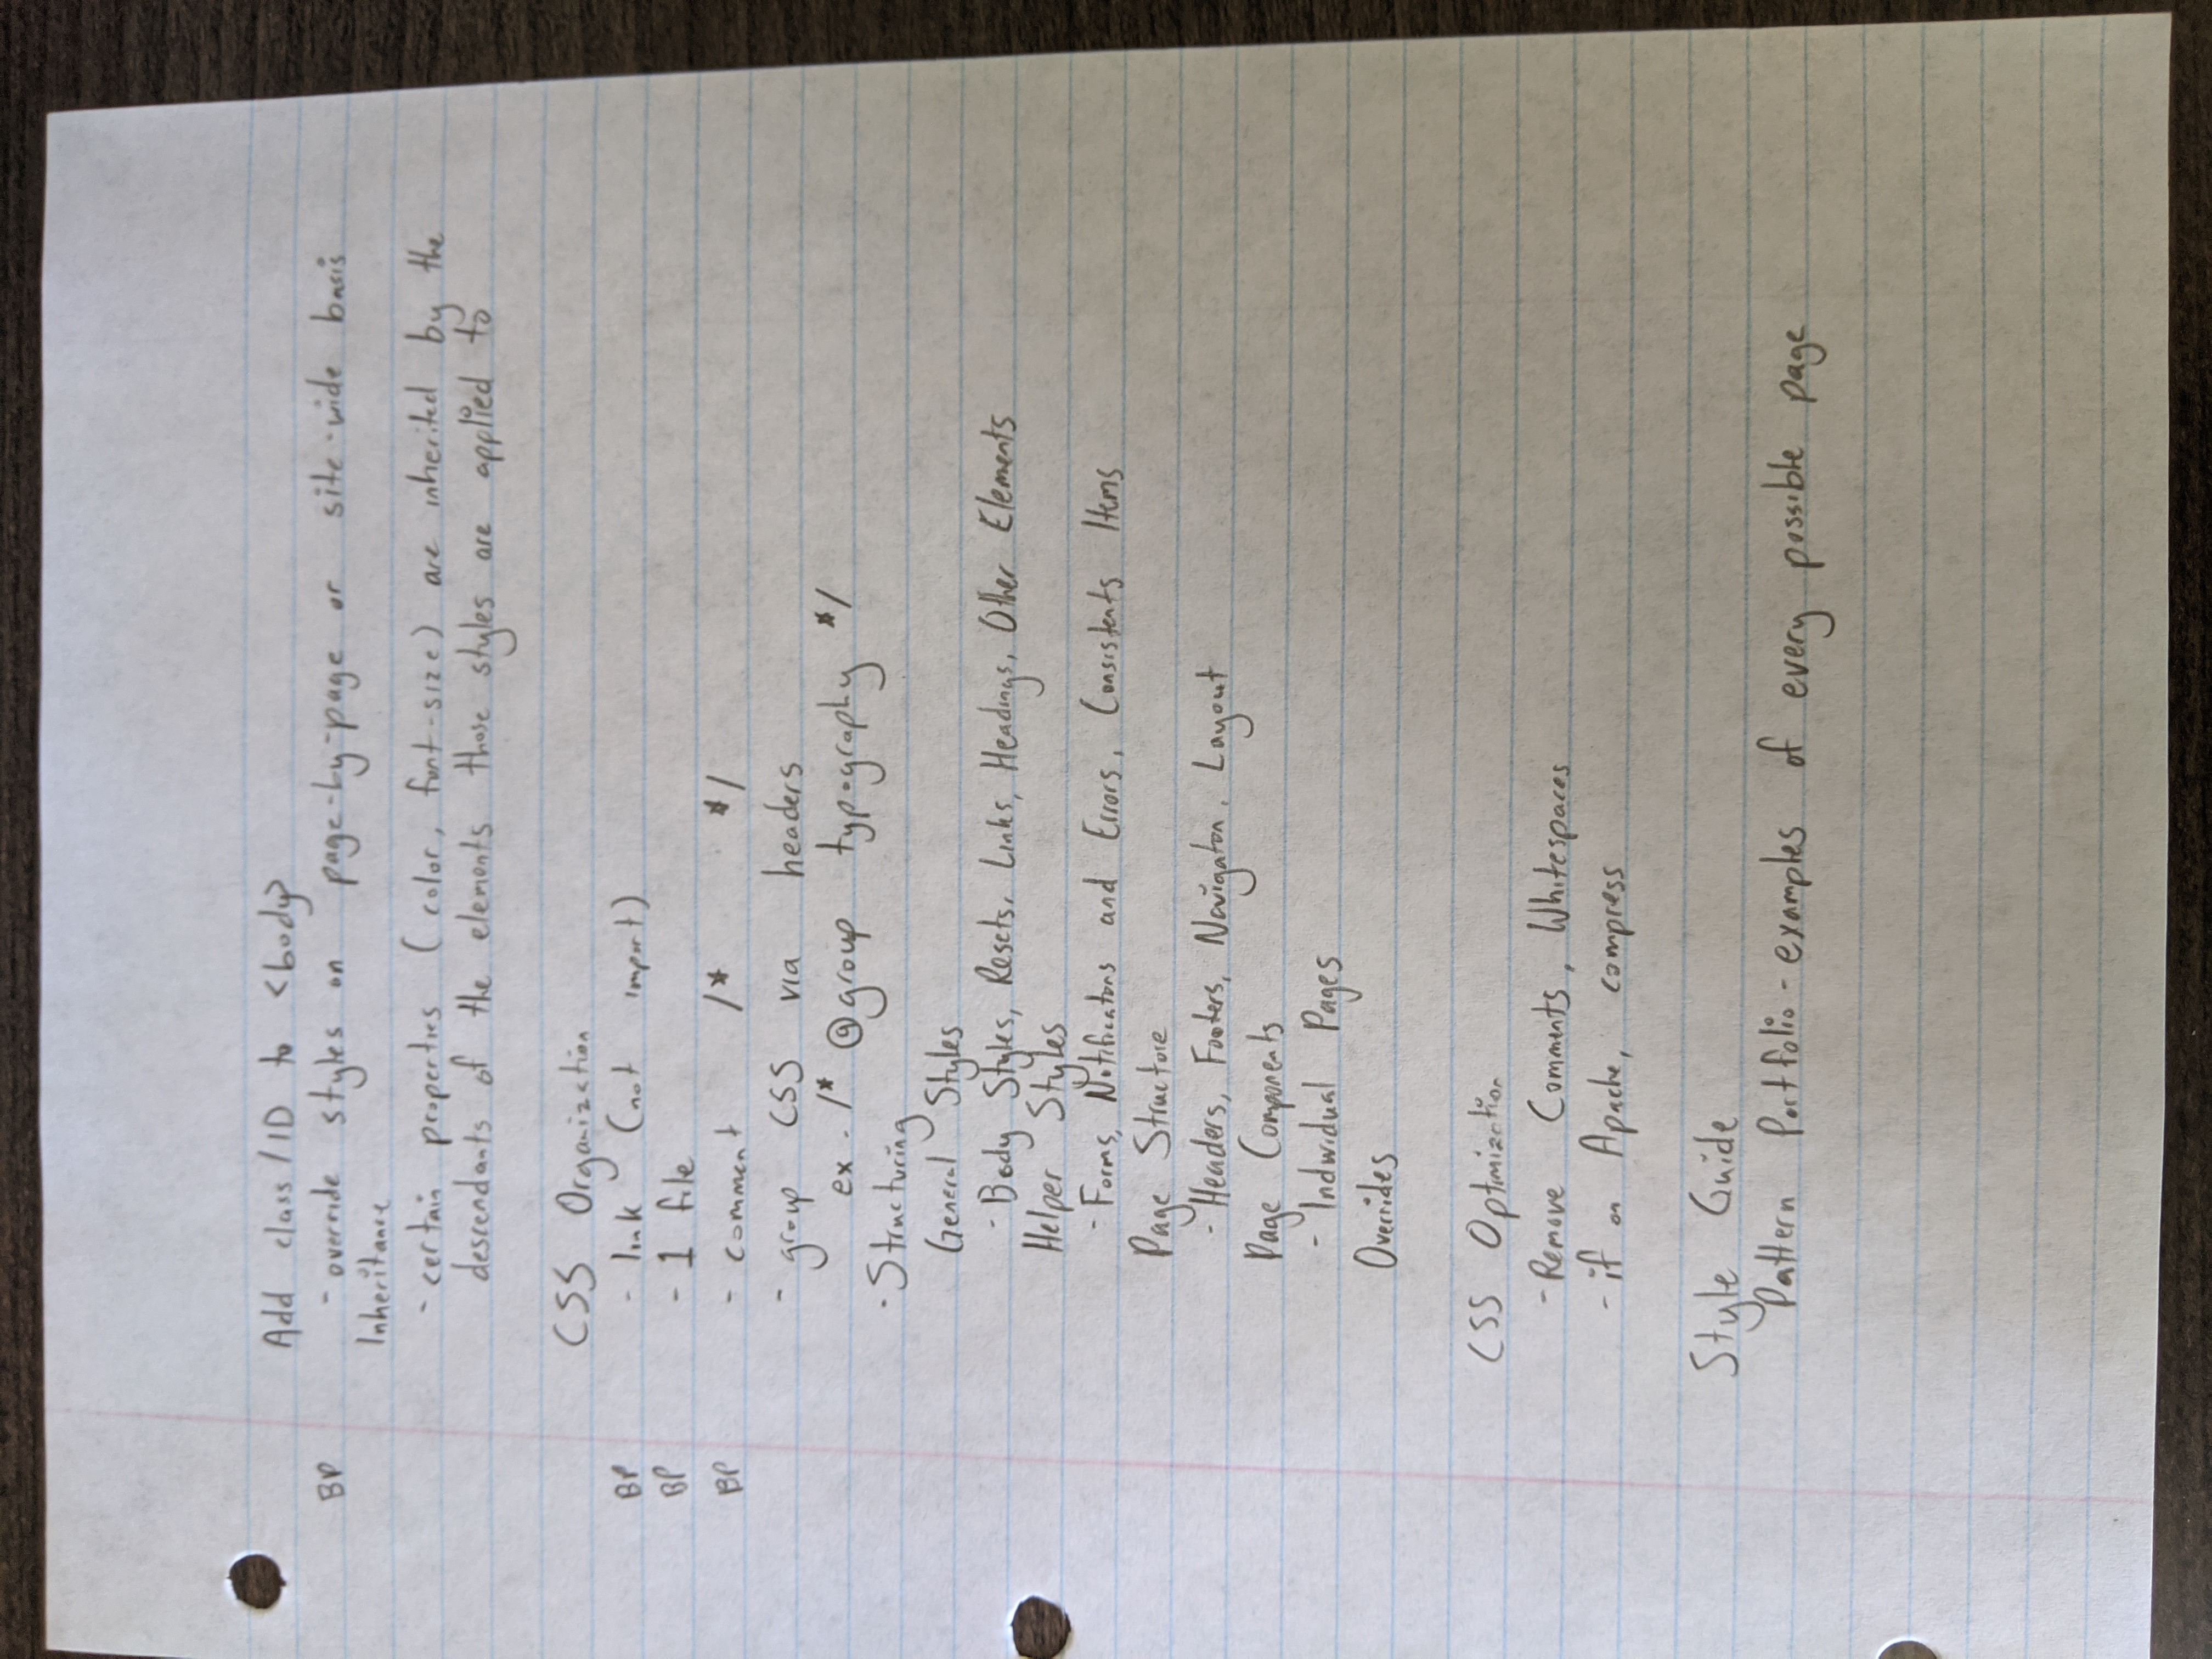 Add class/ID to <body>
BP - override styles on page-by-page or site-wide basis
Inheritance
- certain properties (color, font-size) are inherited by the
descendants of the elements those styles are applied to
CSS Organization
BP - link (not import)
BP - 1 file
BP - comment /* */
- group CSS via headers
ex. /* @group typography */
- Structuring
General Styles
- Body Styles, Resets, Links, Headings, Other Elements
Helper Styles
- Forms, Notifications and Errors, Consistents Items
Page Structure
- Headers, Footers, Navigation, Layout
Page Components
- Individual Pages
Overrides
CSS Optimization
- Remove Comments, Whitespaces
- if on Apache, compress
Style Guide
Pattern Portfolio - examples of every possible page